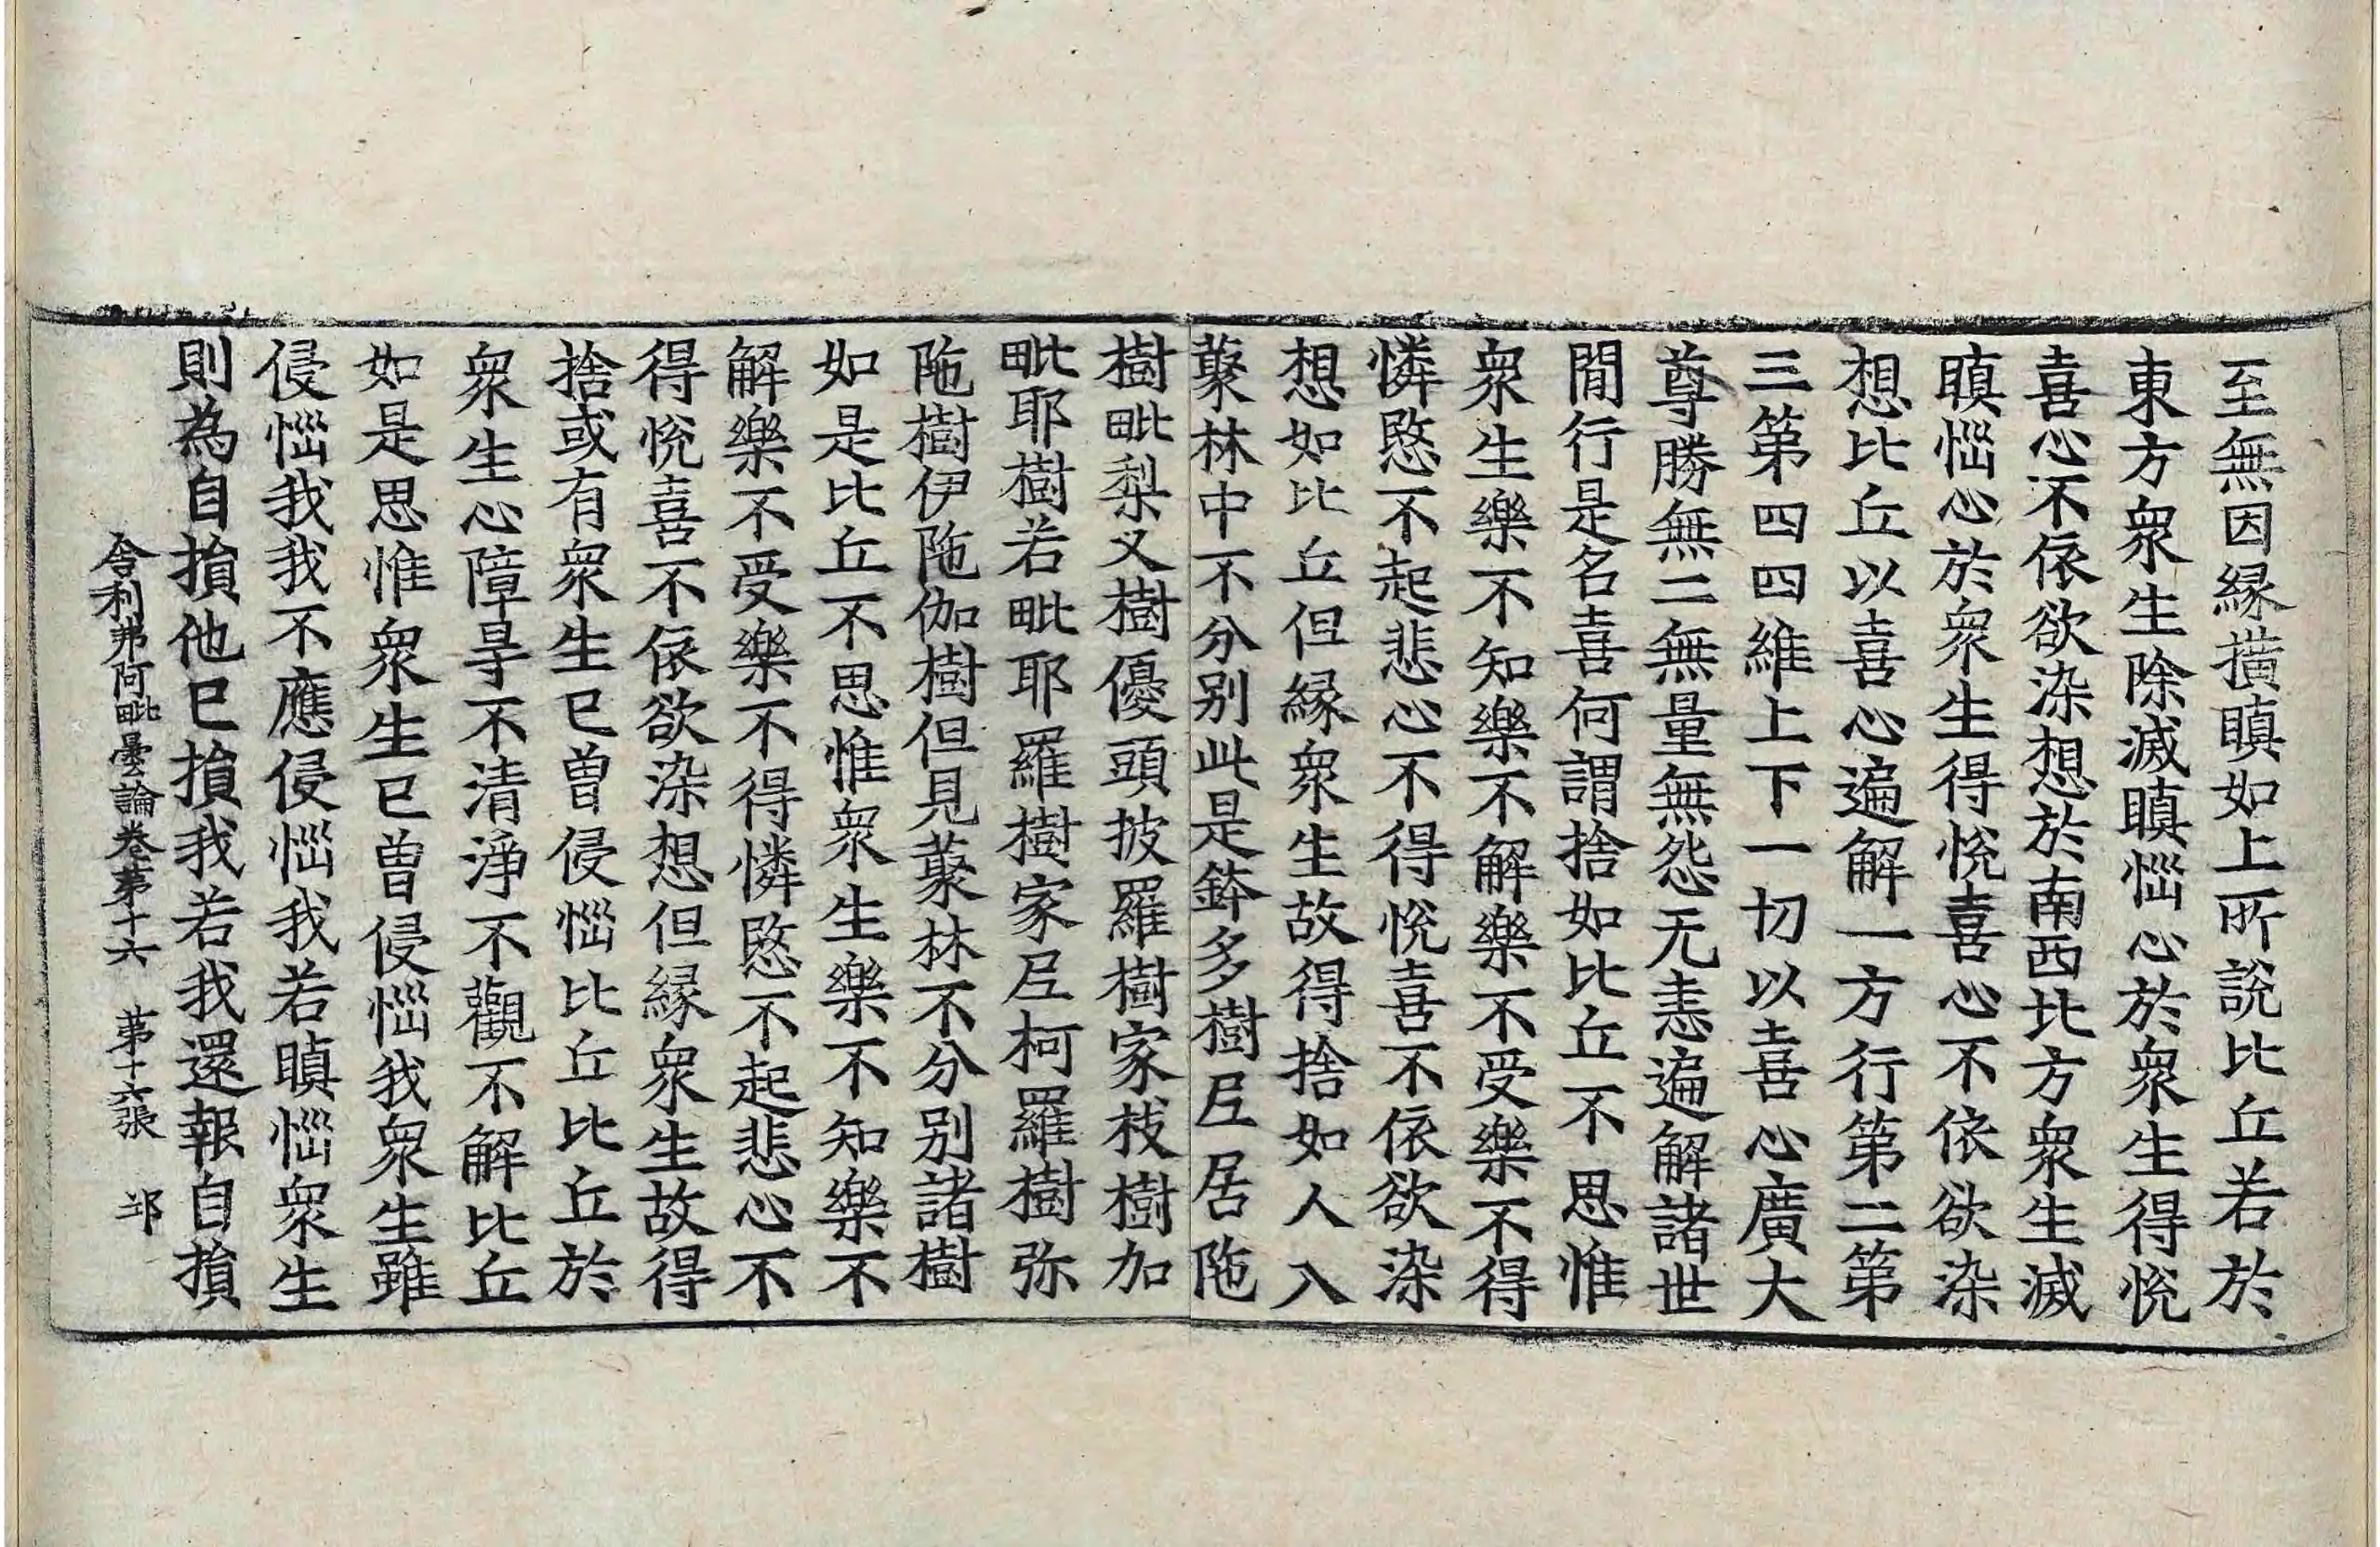 至無因縁撗瞋如上所說比丘若於
東方衆生除滅瞋惱心於衆生得悅
喜心不依欲染想於南西北方衆生滅
瞋惱心於衆生得悅喜心不依欲染
想比丘以喜心遍解一方行第二第
三第四四維上下一切以喜心廣大
尊勝無二無量無怨无恚遍解諸世
間行是名喜何謂捨如比丘不思惟
衆生樂不知樂不解樂不受樂不得
憐愍不起悲心不得悅喜不依欲染
想如比丘但縁衆生故得捨如人入
藂林中不分別此是鉢多樹𡰱居陁
樹毗梨叉樹優頭披羅樹家枝樹加
毗耶樹若毗耶羅樹家𡰱柯羅樹弥
陁樹伊陁伽樹但見藂林不分別諸樹
如是比丘不思惟衆生樂不知樂不
解樂不受樂不得憐愍不起悲心不
得悅喜不依欲染想但縁衆生故得
捨或有衆生已曽侵惱比丘比丘於
衆生心障㝵不清淨不觀不解比丘
如是思惟衆生已曽侵惱我衆生雖
侵惱我我不應侵惱我若瞋惱衆生
則為自損他已損我若我還報自損
舍利弗阿毗曇論卷第十六 第十六張 邙